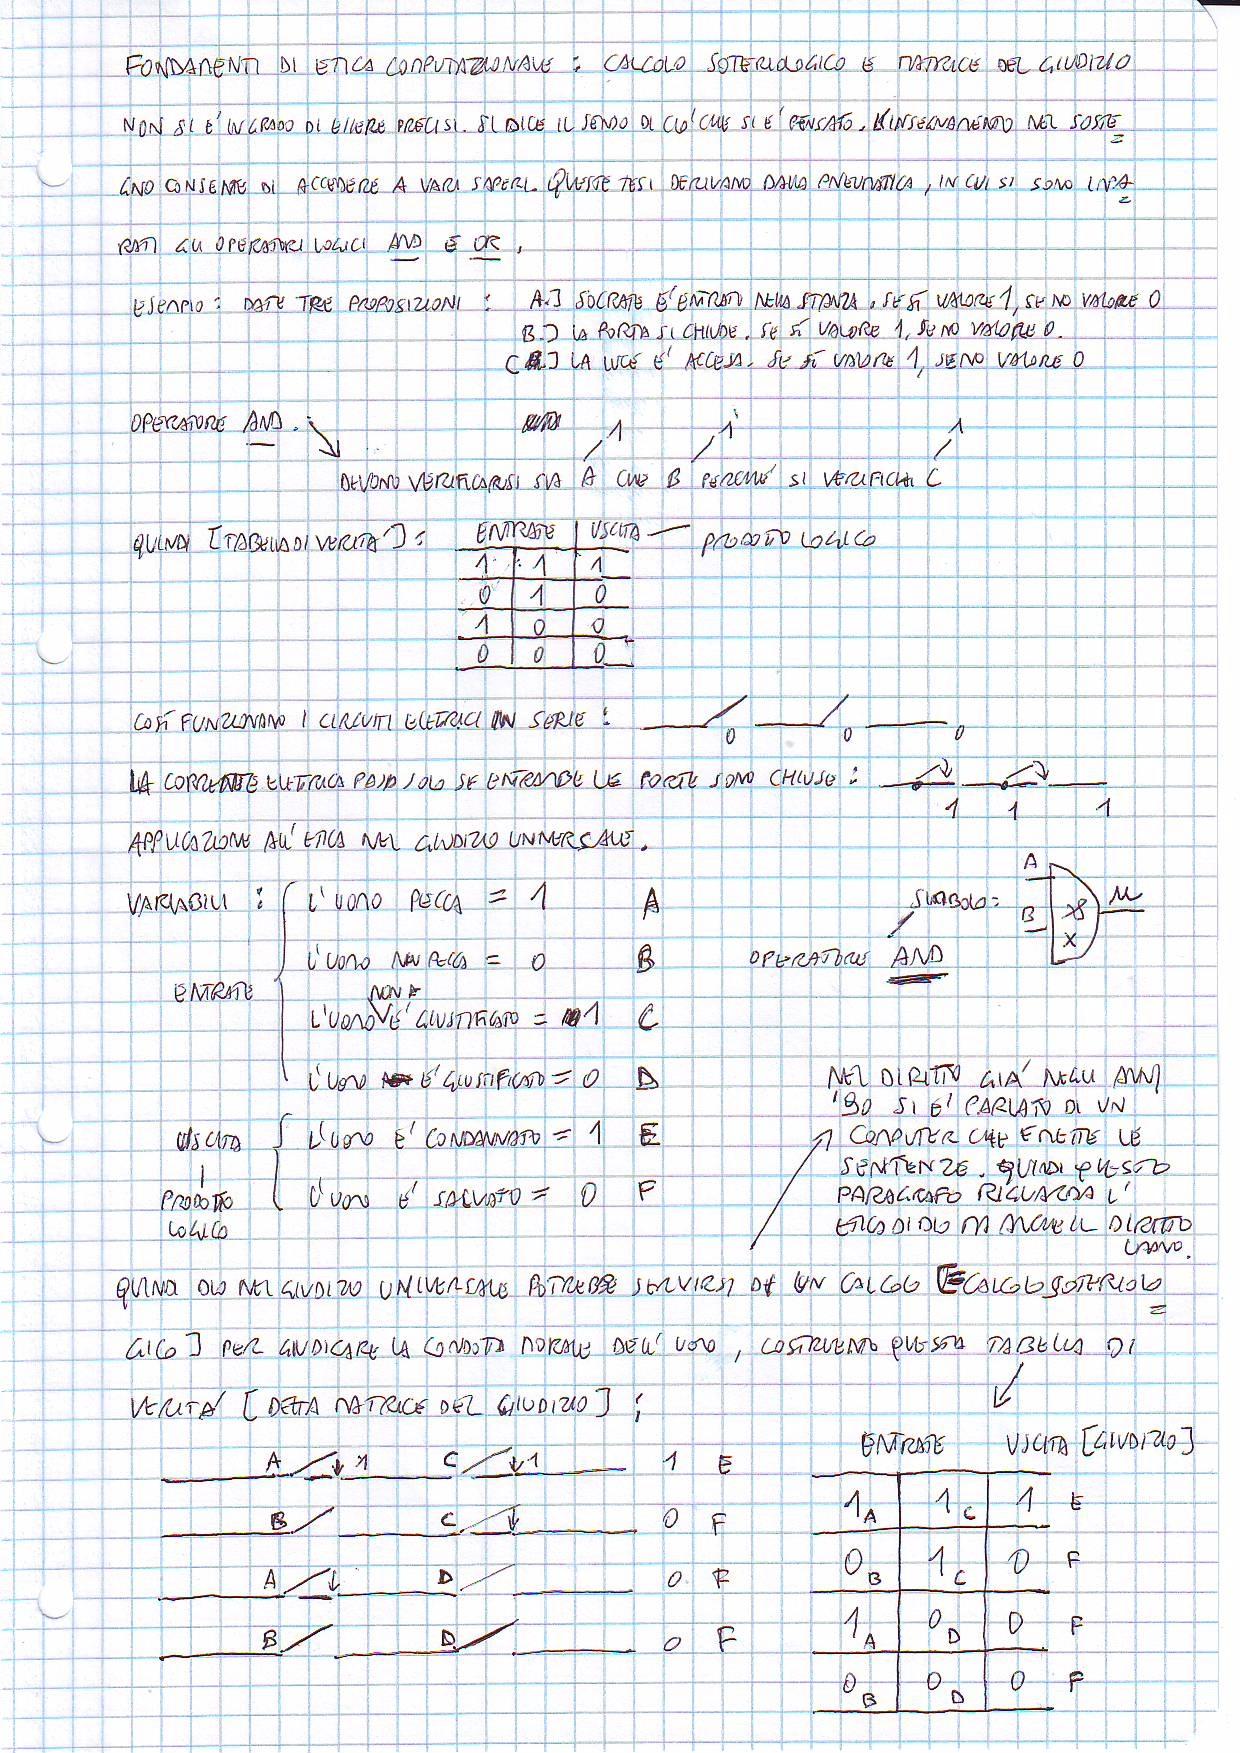 FONDAMENTI DI ETICA COMPUTAZIONALE : CALCOLO SOTERIOLOGICO E MATRICE DEL GIUDIZIO
NON SI E' IN GRADO DI ESSERE PRECISI. SI DICE IL SENSO DI CIO' CHE SI E' PENSATO. L'INSEGNAMENTO NEL SOSTE
GNO CONSENTE DI ACCEDERE A VARI SAPERI. QUESTE TESI DERIVANO DALLA PNEUMATICA, IN CUI SI SONO IMPA
RATI GLI OPERATORI LOGICI AND E OR.
ESEMPIO : DATE TRE PROPOSIZIONI : A.] SOCRATE E' ENTRATO NELLA STANZA. SE SÌ VALORE 1, SE NO VALORE 0
B.] LA PORTA SI CHIUDE. SE SÌ VALORE 1, SE NO VALORE 0.
C.] LA LUCE E' ACCESA. SE SÌ VALORE 1, SE NO VALORE 0
OPERATORE AND. : 1 1 1
DEVONO VERIFICARSI SIA A CHE B PERCHE' SI VERIFICHI C
QUINDI [TABELLA DI VERITA'] : ENTRATE USCITA — PRODOTTO LOGICO
1 1 1
0 1 0
1 0 0
0 0 0
COSÌ FUNZIONANO I CIRCUITI ELETTRICI IN SERIE : 0 0 0
LA CORRENTE ELETTRICA PASSA SOLO SE ENTRAMBE LE PORTE SONO CHIUSE :
1 1 1
APPLICAZIONE ALL'ETICA NEL GIUDIZIO UNIVERSALE.
VARIABILI : L'UOMO PECCA = 1 A
SIMBOLO = A B & X U
L'UOMO NON PECCA = 0 B
OPERATORE AND
ENTRATE
NON
L'UOMO E' GIUSTIFICATO = 1 C
L'UOMO E' GIUSTIFICATO = 0 D
USCITA L'UOMO E' CONDANNATO = 1 E
PRODOTTO LOGICO
L'UOMO E' SALVATO = 0 F
NEL DIRITTO GIA' NEGLI ANNI
'90 SI E' PARLATO DI UN
COMPUTER CHE EMETTE LE
SENTENZE. QUINDI QUESTO
PARAGRAFO RIGUARDA L'
ETICA DI DIO MA ANCHE IL DIRITTO
UMANO.
QUINDI DIO NEL GIUDIZIO UNIVERSALE POTREBBE SERVIRSI DI UN CALCOLO [CALCOLO SOTERIOLO
GICO] PER GIUDICARE LA CONDOTTA MORALE DELL'UOMO, COSTRUENDO QUESTA TABELLA DI
VERITA' [DETTA MATRICE DEL GIUDIZIO] :
A 1 C 1 1 E
B C 0 F
A D 0 F
B D 0 F
ENTRATE USCITA [GIUDIZIO]
1 A 1 C 1 E
0 B 1 C 0 F
1 A 0 D 0 F
0 B 0 D 0 F